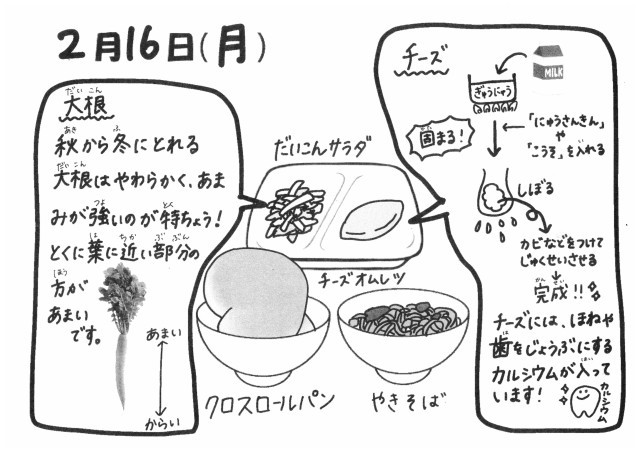 2月16日(月)
大根
だいこん
秋から冬にとれる
あき ふゆ
大根はやわらかく、あま
だいこん
みが強いのが特ちょう!
つよ とく
とくに葉に近い部分の
は ちか ぶぶん
方が
ほう
あまい
です。
あまい
からい
だいこんサラダ
チーズオムレツ
クロスロールパン
やきそば
チーズ
MILK
ぎゅうにゅう
固まる!
かた
「にゅうさんきん」
や
「こうそ」を入れる
しぼる
カビなどをつけて
じゅくせいさせる
完成!!
かんせい
チーズには、ほねや
歯をじょうぶにする
は
カルシウムが入って
はい
います!
カルシウム